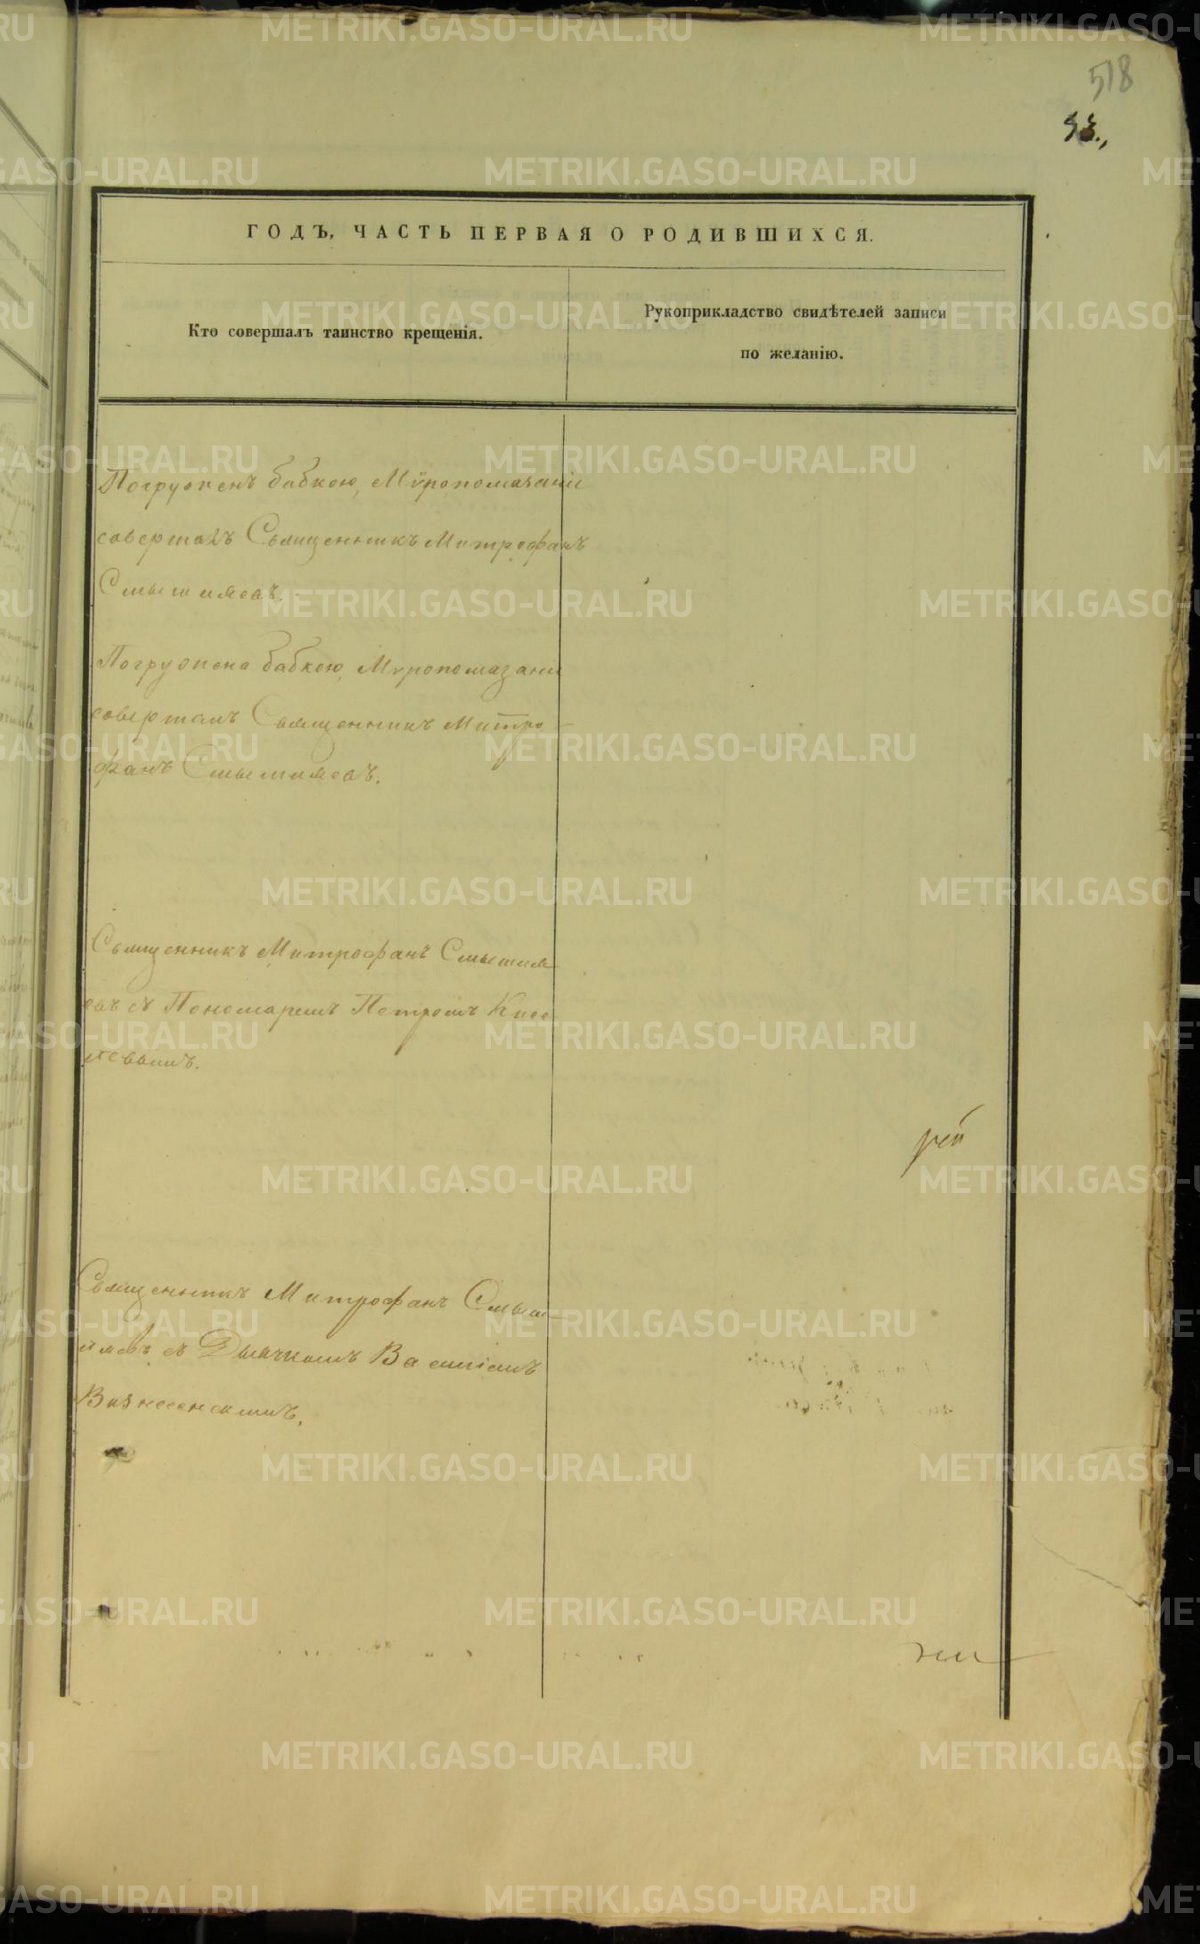 518
ГОДЪ, ЧАСТЬ ПЕРВАЯ О РОДИВШИХСЯ.
Кто совершалъ таинство крещенія.
Рукоприкладство свидѣтелей записи
по желанію.
Погруженъ бабкою, Мѵропомазаніе
совершалъ Священникъ Митрофанъ
Смышляевъ.
Погружена бабкою, Мѵропомазаніе
совершалъ Священникъ Митро
фанъ Смышляевъ.
Священникъ Митрофанъ Смышля
евъ съ Пономаремъ Петромъ Кисе
левымъ.
Священникъ Митрофанъ Смыш
ляевъ съ Дьячкомъ Василіемъ
Вознесенскимъ.
METRIKI.GASO-URAL.RU